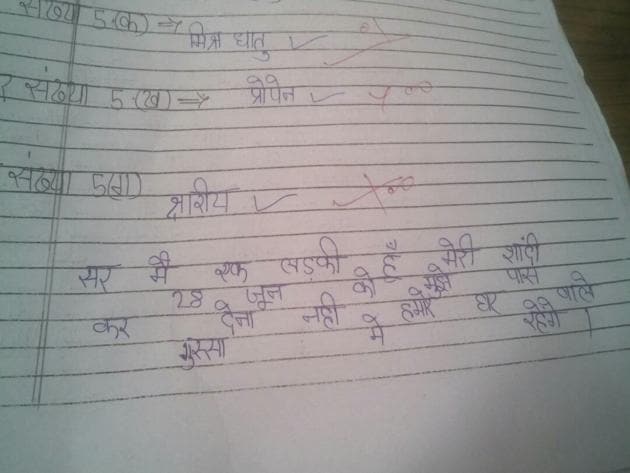 संख्या 5.(क) ⇒ मिश्र धातु ✓
संख्या 5.(ख) ⇒ प्रोपेन ✓
संख्या 5(ग)
क्षारीय ✓
सर मैं एक लड़की हूँ मेरी शादी
28 जून को है मुझे पास
कर देना नहीं हमारे घर वाले
गुस्सा में रहेंगे।